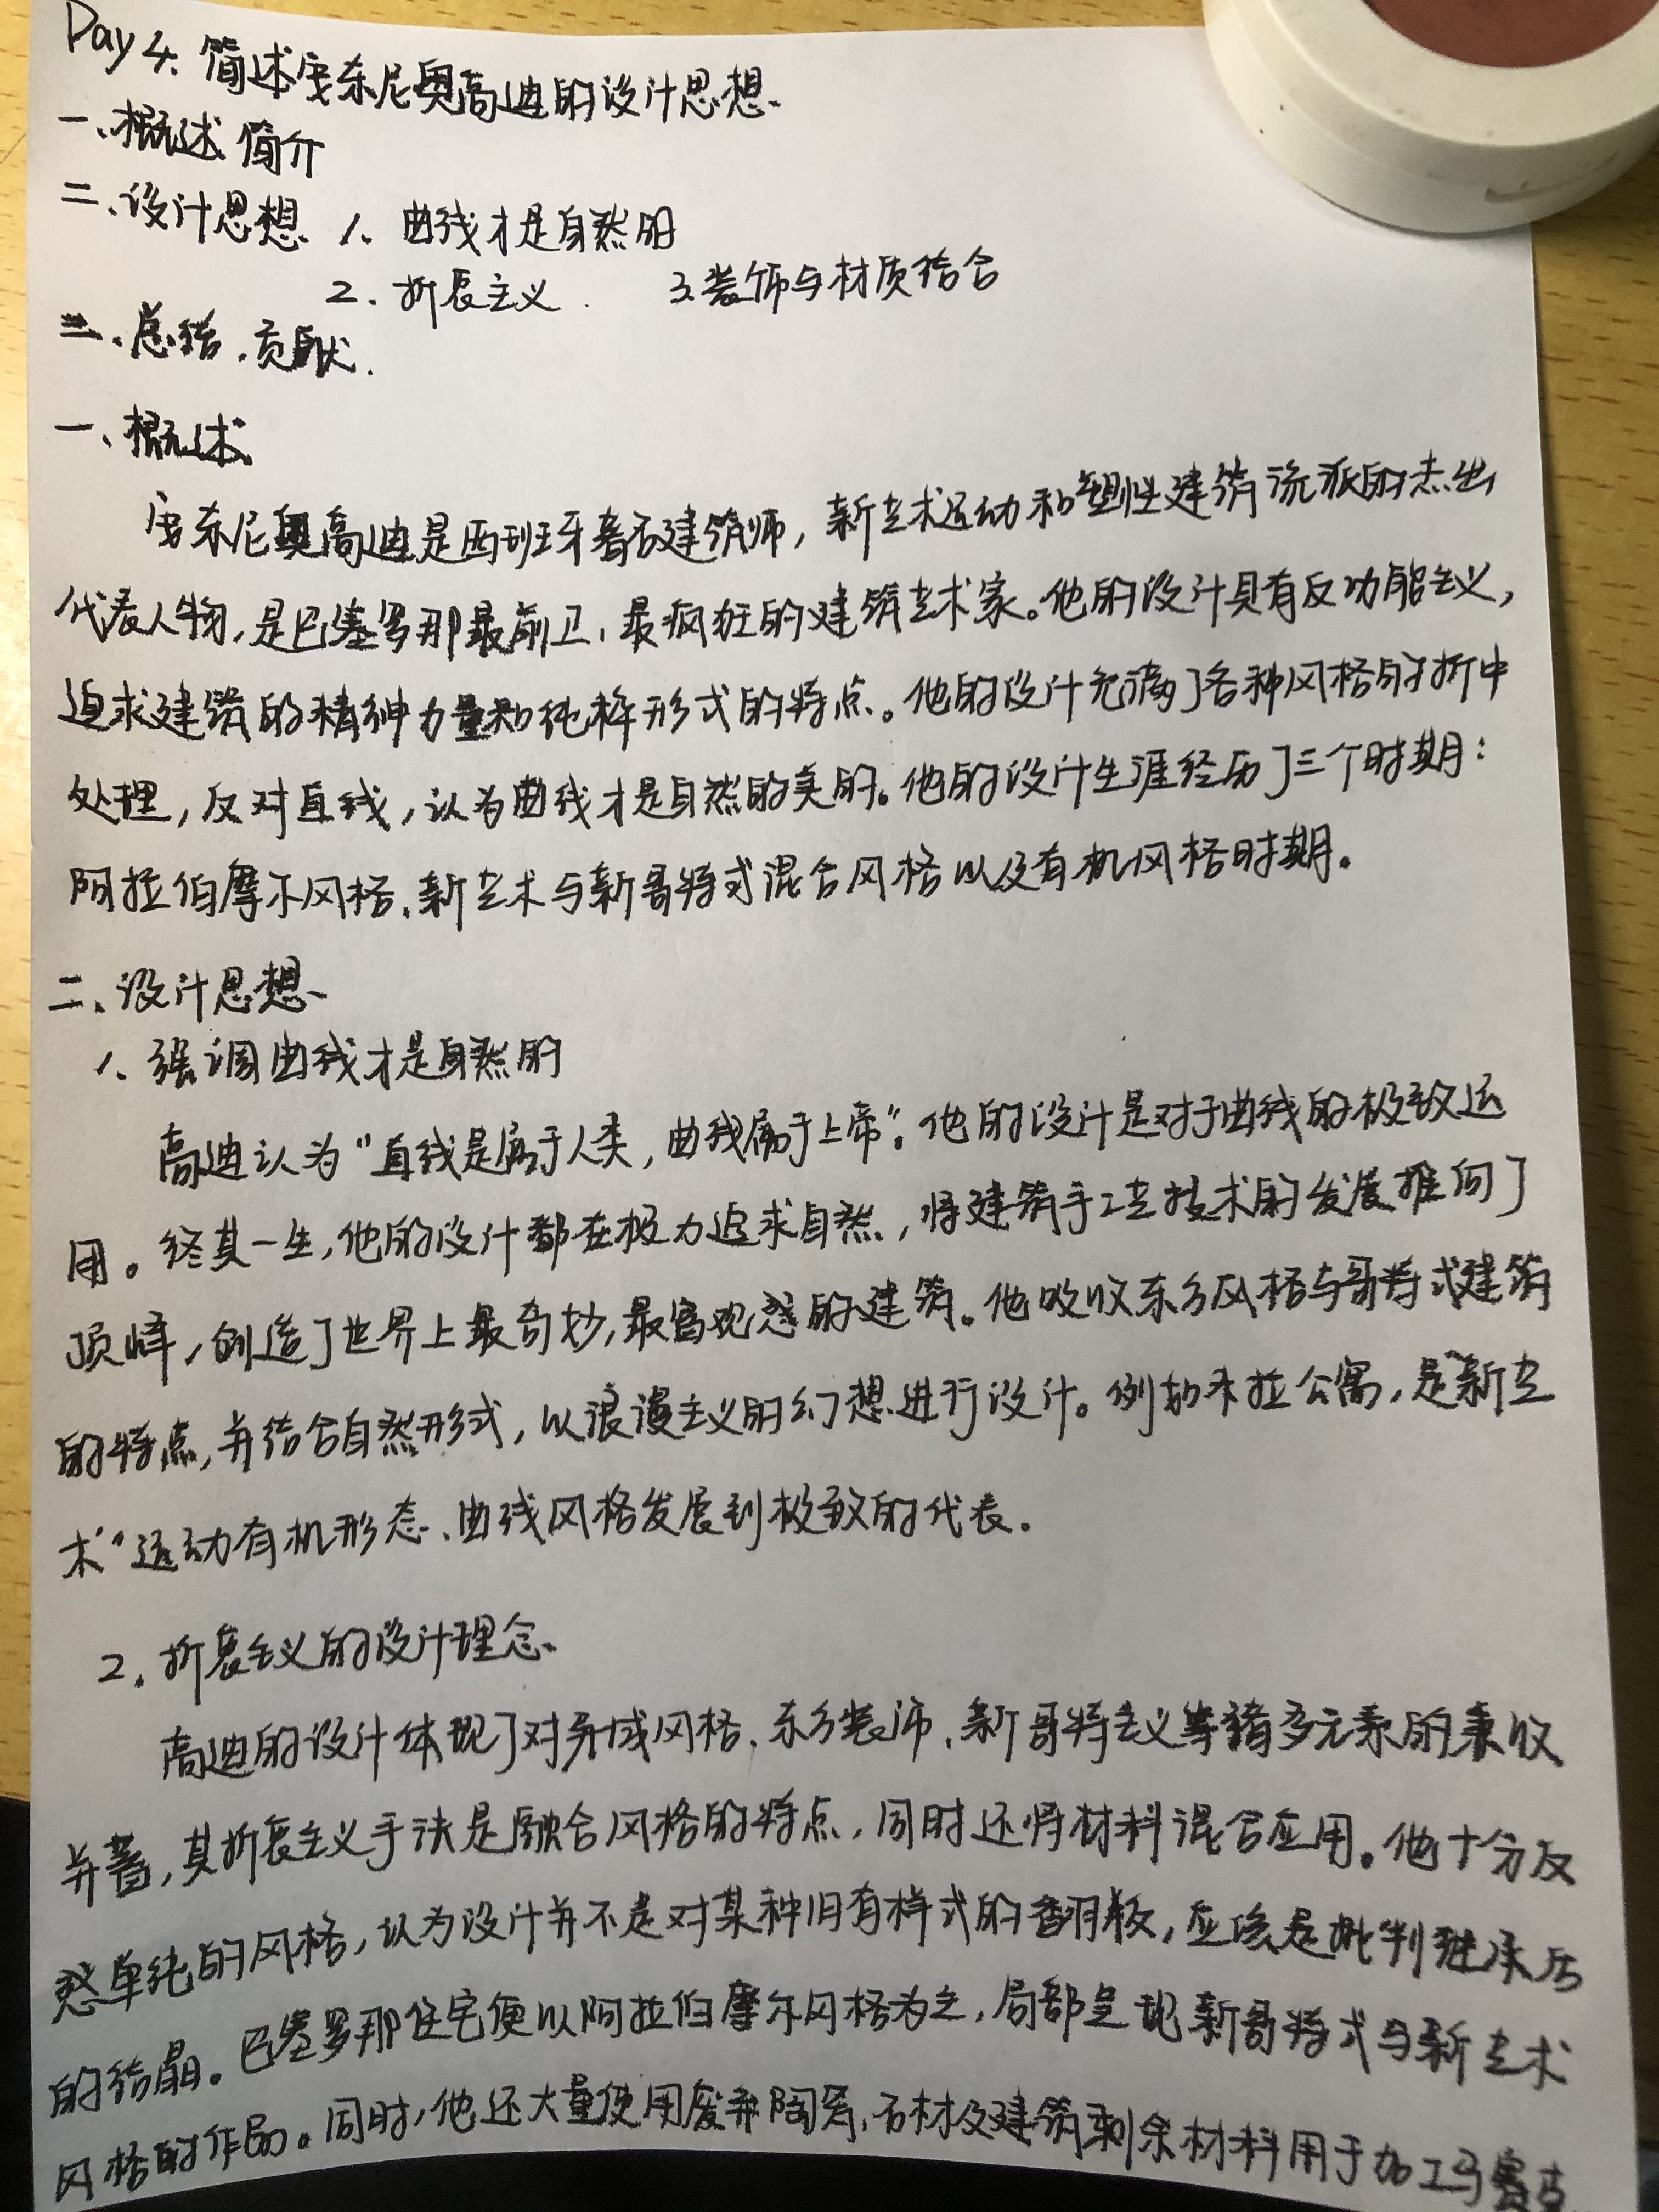 Day 4. 简述安东尼奥高迪的设计思想.
一、概述 简介
二、设计思想 1. 曲线才是自然的
2. 折衷主义. 3.装饰与材质结合
三、总结.贡献.
一、概述
安东尼奥高迪是西班牙著名建筑师,新艺术运动和塑性建筑流派的杰出
代表人物,是巴塞罗那最前卫、最疯狂的建筑艺术家。他的设计具有反功能主义,
追求建筑的精神力量和纯粹形式的特点。他的设计充满了各种风格的折中
处理,反对直线,认为曲线才是自然的美的。他的设计生涯经历了三个时期:
阿拉伯摩尔风格、新艺术与新哥特式混合风格以及有机风格时期。
二、设计思想
1. 强调曲线才是自然的
高迪认为“直线是属于人类,曲线属于上帝”。他的设计是对于曲线的极致运
用。终其一生,他的设计都在极力追求自然,将建筑手工艺技术的发展推向了
顶峰,创造了世界上最奇妙,最富观感的建筑。他吸收东方风格与哥特式建筑
的特点,并结合自然形式,以浪漫主义的幻想进行设计。例如米拉公寓,是“新艺
术”运动有机形态、曲线风格发展到极致的代表.
2. 折衷主义的设计理念.
高迪的设计体现了对异域风格、东方装饰、新哥特主义等诸多元素的兼收
并蓄,其折衷主义手法是融合风格的特点,同时还将材料混合应用。他十分反
感单纯的风格,认为设计并不是对某种旧有样式的翻版,应该是批判继承后
的结晶。巴塞罗那住宅便以阿拉伯摩尔风格为主,局部呈现新哥特式与新艺术
风格的作品。同时,他还大量使用废弃陶瓷,石材及建筑剩余材料用于加工马赛克